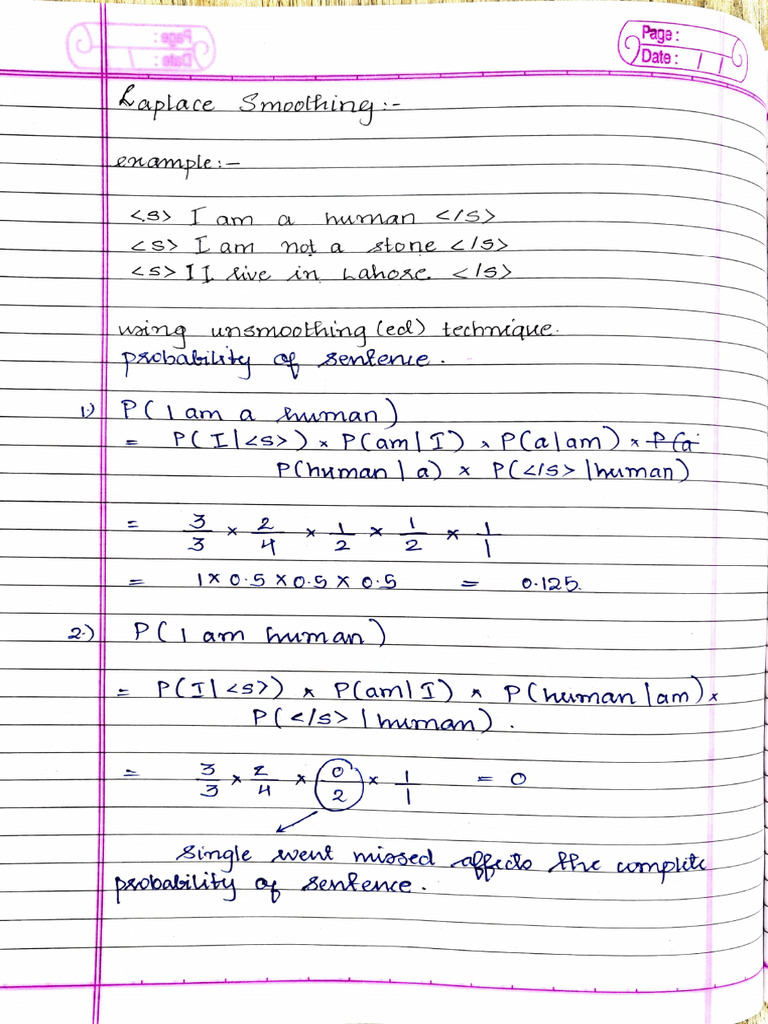 Page :
Date : / /
Laplace Smoothing:-
example:-
<s> I am a human </s>
<s> I am not a stone </s>
<s> I I live in Lahore. </s>
using unsmoothing(ed) technique.
probability of sentence.
1.) P(I am a human)
= P(I|<s>) × P(am|I) × P(a|am) × P(a
P(human|a) × P(</s>|human)
= 3/3 × 2/4 × 1/2 × 1/2 × 1/1
= 1 × 0.5 × 0.5 × 0.5 = 0.125.
2.) P(I am human)
= P(I|<s>) × P(am|I) × P(human|am) ×
P(</s>|human).
= 3/3 × 2/4 × 0/2 × 1/1 = 0
Single event missed affects the complete
probability of sentence.